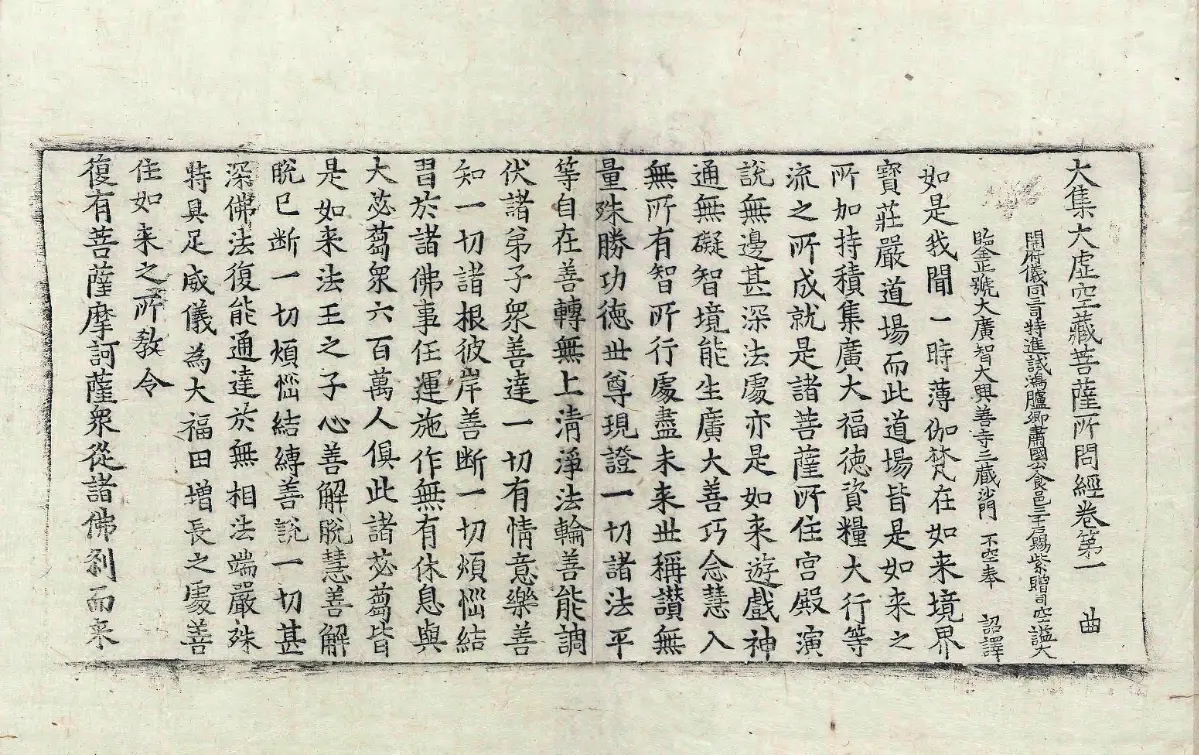 大集大虛空藏菩薩所問經卷第一 曲
開府儀同三司特進試鴻臚卿肅國公食邑三千戶賜紫贈司空謚大
鑒正號大廣智大興善寺三藏沙門 不空奉 詔譯
如是我聞一時薄伽梵在如來境界
寶莊嚴道場而此道場皆是如來之
所加持積集廣大福德資糧大行等
流之所成就是諸菩薩所住宮殿演
說無邊甚深法處亦是如来遊戲神
通無礙智境能生廣大善巧念慧入
無所有智所行處盡未来世稱讚無
量殊勝功德世尊現證一切諸法平
等自在善轉無上清淨法輪善能調
伏諸弟子衆善達一切有情意樂善
知一切諸根彼岸善斷一切煩惱結
習於諸佛事任運施作無有休息與
大苾蒭衆六百萬人俱此諸苾蒭皆
是如来法王之子心善解脫慧善解
脫已断一切煩惱結縛善說一切甚
深佛法復能通達於無相法端嚴殊
特具足威儀為大福田增長之處善
住如来之所教令
復有菩薩摩訶薩衆從諸佛刹而来